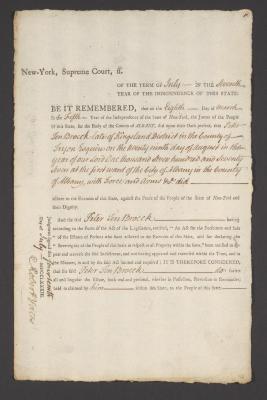 New-York, Supreme Court, ss.
OF THE TERM OF July IN THE Seventh
YEAR OF THE INDEPENDENCE OF THIS STATE:
BE IT REMEMBERED, that on the Eighth Day of March
In the Fifth Year of the Independence of the State of New-York, the Jurors of the People
of this State, for the Body of the County of ALBANY, did upon their Oath present, that Peter
Ten Broeck late of Kingsland District in the County of
Tryon Esquire on the twenty ninth day of August in the
year of our Lord One thousand seven hundred and seventy
seven at the first ward of the City of Albany in the County of
Albany, with Force and Arms &c did
adhere to the Enemies of this State, against the Peace of the People of the State of New-York and
their Dignity.
And the said Peter Ten Broeck having
according to the Form of the Act of the Legislature, entitled, "An Act for the Forfeiture and Sale
"of the Estates of Persons who have adhered to the Enemies of this State, and for declaring the
"Sovereignty of the People of this State in respect to all Property within the same," been
and in
the Manner, in and by the said Act limited and required; IT IS THEREFORE CONSIDERED,
that the said Peter Ten Broeck do forfeit
all and singular the Estate, both real and personal, whether in Possession, Reversion or Remainder,
held or claimed by him within this State, to the People of this State
Judgment
July
MDCCLXXXIII.